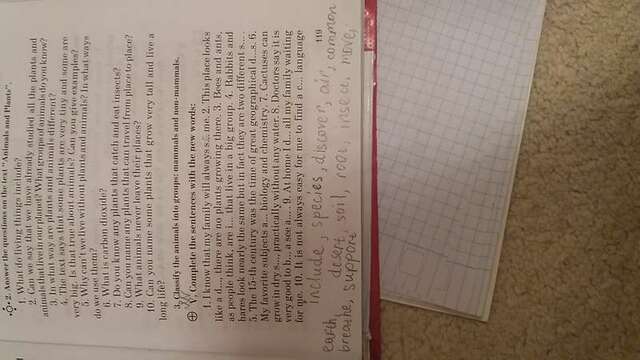 2. Answer the questions on the text "Animals and Plants".
1. What do living things include?
2. Can we say that we have already studied all the plants and
animals that live in our planet? What groups of animals do you know?
3. In what way are plants and animals different?
4. The text says that some plants are very tiny and some are
very big. Is that true about animals? Can you give examples?
5. Why can't we live without plants and animals? In what ways
do we use them?
6. What is carbon dioxide?
7. Do you know any plants that catch and eat insects?
8. Can you name any plants that can travel from place to place?
9. What animals never leave their places?
10. Can you name some plants that grow very tall and live a
long life?
3. Classify the animals into groups: mammals and non-mammals.
V. Complete the sentences with the new words:
1. I know that my family will always s... me. 2. This place looks
like a d..., there are no plants growing there. 3. Bees and ants,
as people think, are i... that live in a big group. 4. Rabbits and
hares look nearly the same but in fact they are two different s... .
5. The 15-th century was the time of great geographical d...s. 6.
My favorite subjects a... biology and chemistry. 7. Cactuses can
grow in dry s..., practically without any water. 8. Doctors say it is
very good to b... a see a... . 9. At home I d... all my family waiting
for me. 10. It is not always easy for me to find a c... language
119
include, species, discover, air, common
earth, desert, soil, root, insect, move,
breathe, support